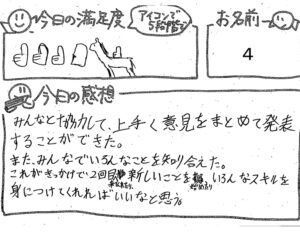 今日の満足度
アイコンで
5段階で
お名前
4
今日の感想
みんなと協力して、上手く意見をまとめて発表
することができた。
また、みんなでいろんなことを知り合えた。
これがきっかけで2回目新しいことを 、いろんなスキルを
身につけてくれればいいなと思う。